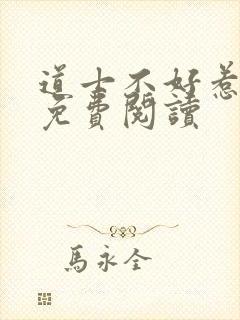 道士不好惹
免費閱讀
馬永全